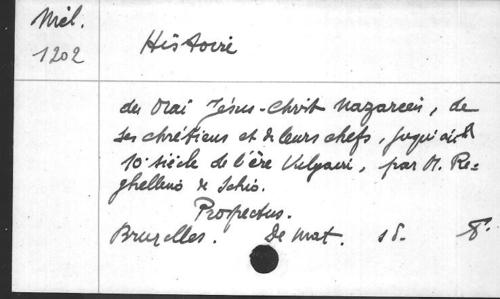 Mél.
1202
Histoire
du vrai Jésus-Christ Nazaréen, de
ses chrétiens et de leurs chefs, jusqu'au
10e siècle de l'ère Vulgaire, par M. Re-
ghellini de Schio.
Prospectus.
Bruxelles. De Mat. s d. 8°.